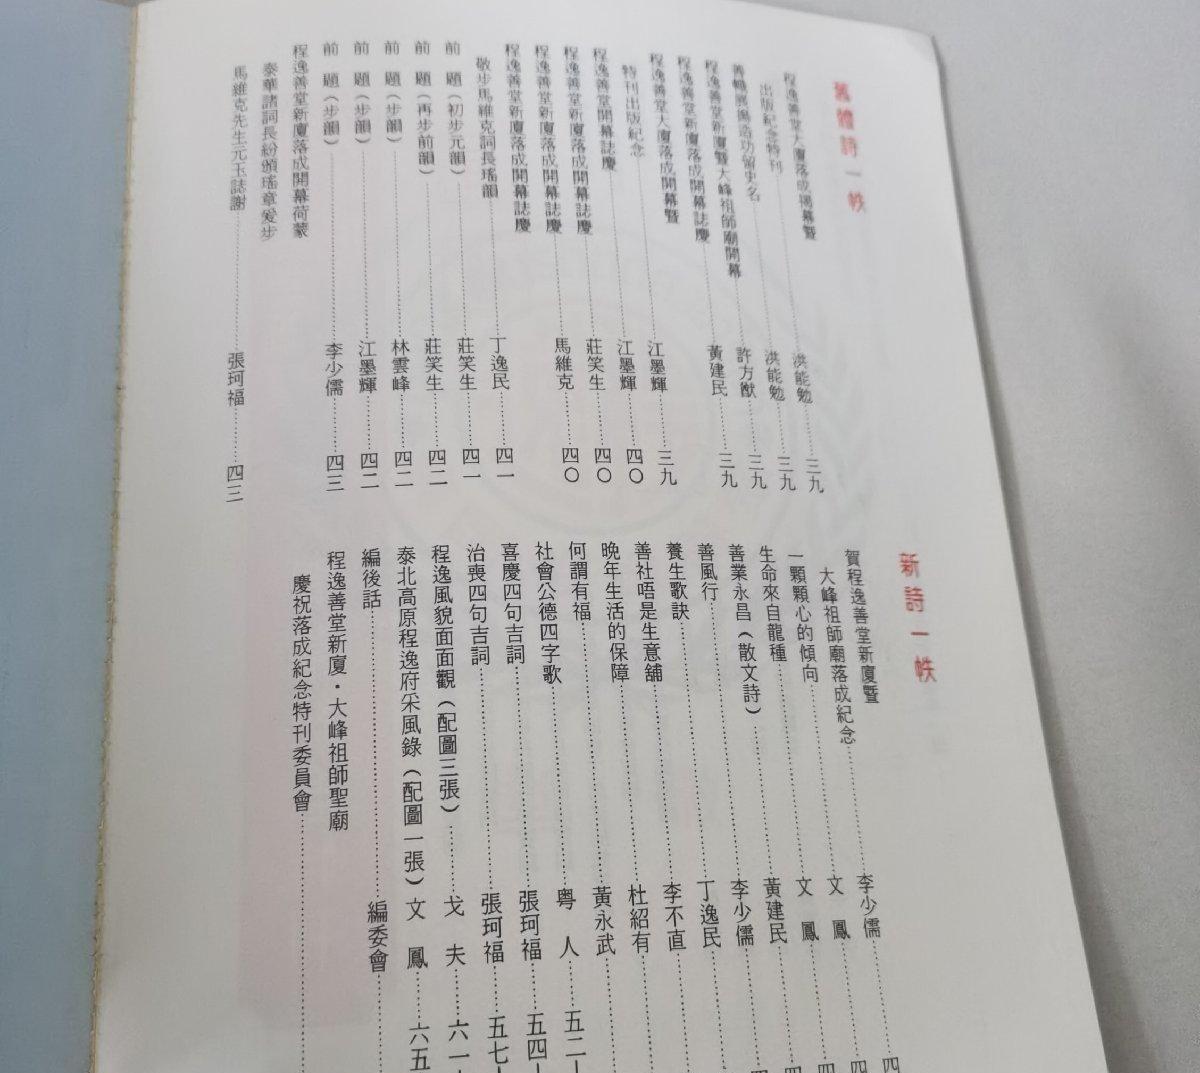 舊體詩一帙
程逸善堂大廈落成揭幕暨
出版紀念特刊……洪能勉……三九
善幟展揚造功留史名……洪能勉……三九
程逸善堂新廈暨大峰祖師廟開幕……許方猷……三九
程逸善堂新廈落成開幕誌慶……黃建民……三九
程逸善堂大廈落成開幕暨
特刊出版紀念……江墨輝……三九
程逸善堂開幕誌慶……江墨輝……四〇
程逸善堂新廈落成開幕誌慶……莊笑生……四〇
程逸善堂新廈落成開幕誌慶……馬維克……四〇
程逸善堂新廈落成開幕誌慶
敬步馬維克詞長瑤韻……丁逸民……四一
前 題（初步元韻）……莊笑生……四一
前 題（再步前韻）……莊笑生……四二
前 題（步韻）……林雲峰……四二
前 題（步韻）……江墨輝……四二
前 題（步韻）……李少儒……四三
程逸善堂新廈落成開幕荷蒙
泰華諸詞長紛頒瑤章爰步
馬維克先生元玉誌謝……張珂福……四三
新詩一帙
賀程逸善堂新廈暨
大峰祖師廟落成紀念……李少儒……四
一顆顆心的傾向……文 鳳……四
生命來自龍種……文 鳳……四
善業永昌（散文詩）……黃建民……四
善風行……李少儒……四
養生歌訣……丁逸民……
善社唔是生意舖……李不直……
晚年生活的保障……杜紹有……
何謂有福……黃永武……
社會公德四字歌……粵 人……五二
喜慶四句吉詞……張珂福……五四
治喪四句吉詞……張珂福……五七
程逸風貌面面觀（配圖三張）……戈 夫……六一
泰北高原程逸府采風錄（配圖一張）文 鳳……六五
編後話……編委會……
程逸善堂新廈・大峰祖師聖廟
慶祝落成紀念特刊委員會……